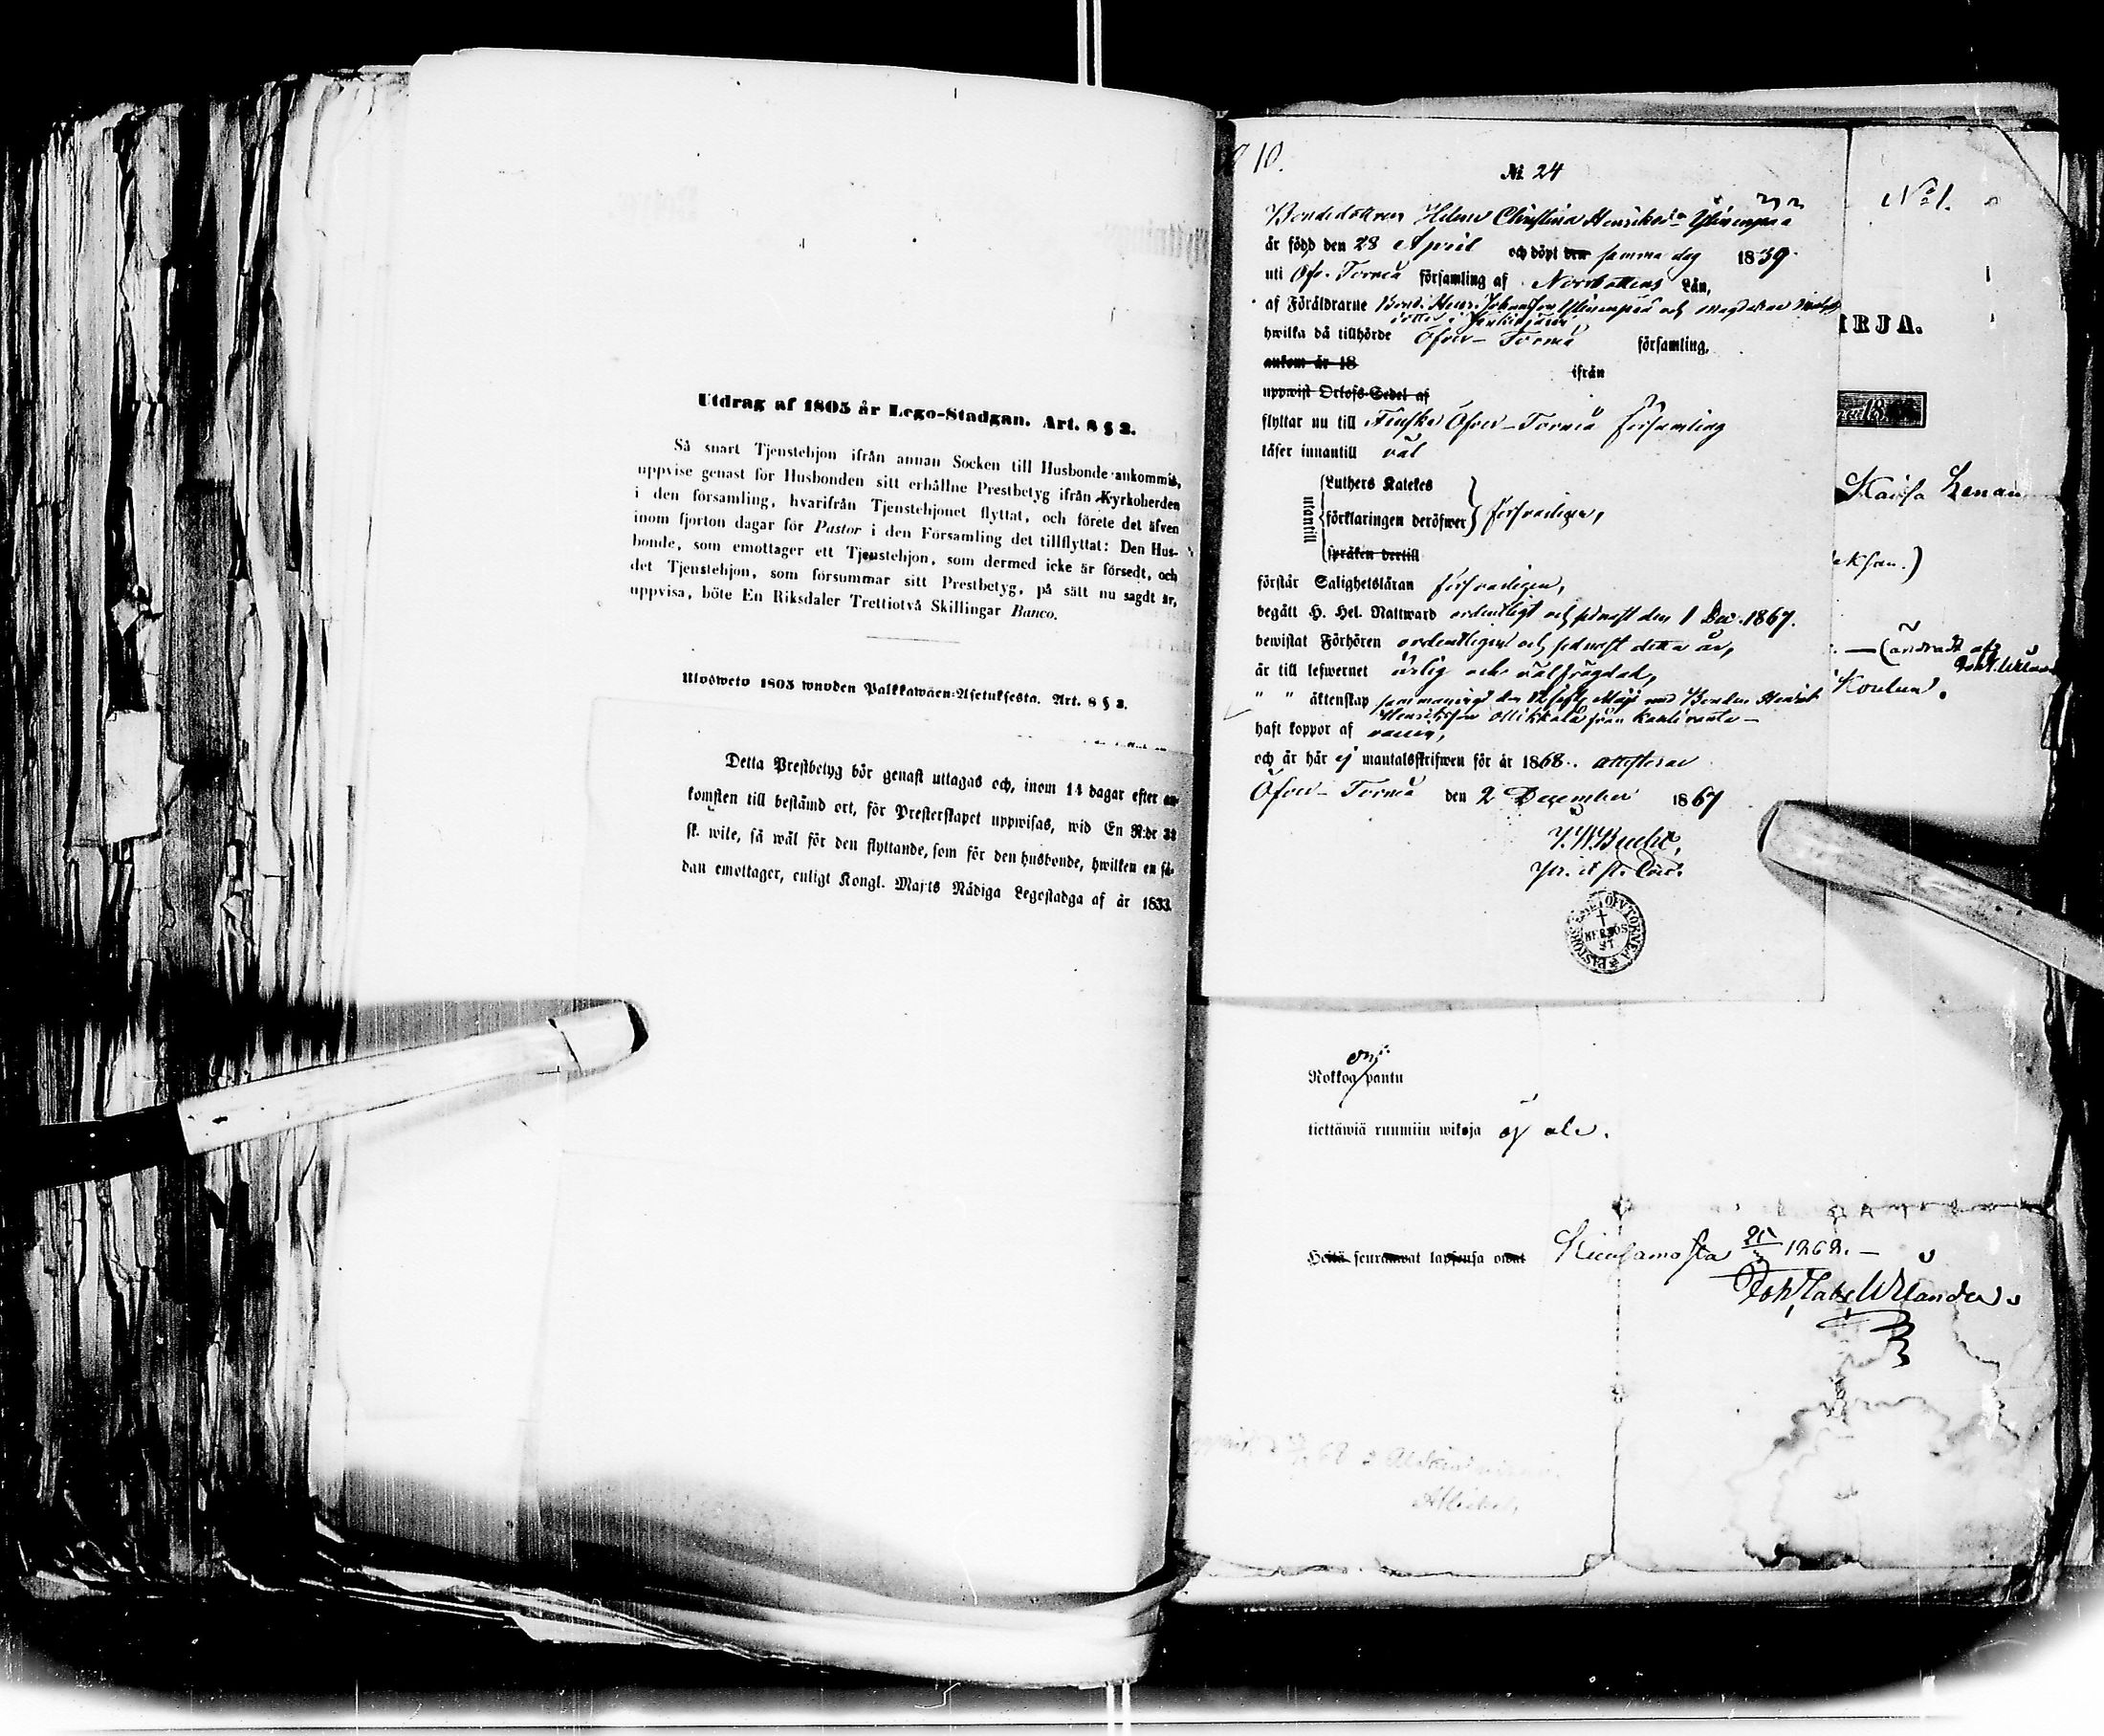 Utdrag af 1805 år Lego-Stadgan. Art. 8 § 2.
Så snart Tjenstehjon ifrån annan Socken till Husbonde ankommit,
uppvise genast för Husbonden sitt erhållne Prestbetyg ifrån Kyrkoherden
i den församling, hvarifrån Tjenstehjonet flyttat, och förete det äfven
inom fjorton dagar för Pastor i den Församling det tillflyttat: Den Hus-
bonde, som emottager ett Tjenstehjon, som dermed icke är försedt, och
det Tjenstehjon, som försummar sitt Prestbetyg, på sätt nu sagdt är,
uppvisa, böte En Riksdaler Trettiotvå Skillingar Banco.
Ulosweto 1805 wuoden Palkkawäen-Asetuksesta. Art. 8 § 2.
Detta Prestbetyg bör genast uttagas och, inom 14 dagar efter an-
komsten till bestämd ort, för Presterskapet uppwisas, wid En R:dr 32
sk. wite, så wäl för den flyttande, som för den husbonde, hwilken en så-
dan emottager, enligt Kongl. Maj:ts Nådiga Legostadga af år 1833.
10.
№ 24
Bondedottren Helena Christina Henriksd:r Ylinenpää
är född den 28 April och döpt den samma dag 1839.
uti Öfv. Torneå församling af Norrbottens Län,
af Föräldrarne Bond. Henr. Johansson Ylinenpää och Magdalena
hwilka då tillhörde Öfver-Torneå församling,
ankom år 18 ifrån
uppwist Orlofs-Sedel af
flyttar nu till Finska Öfver-Torneå församling
läser innantill väl
utantill
Luthers Katekes
förklaringen deröfwer försvarligen,
språken dertill
förstår Salighetsläran försvarligen,
begått H. Hel. Nattward ordentligt och senast den 1 Dec. 1867.
bewistat Förhören ordentligen och senast detta år,
är till lefwernet ärlig och välfrägdad,
" " äktenskap den med Bonden Henrik
Henriksson Ollikkala från
haft koppor af vaccin,
och är här ej mantalsskrifwen för år 1868. attesterar
Öfver-Torneå den 2 December 1867
№ 1.
IRJA.
Kaisa
Rokkoa on pantu
tiettäwiä ruumiin wikoja ej ole.
Heitä seuraawat lapsensa owat Kuusamosta 1868.
Joh. Wilander